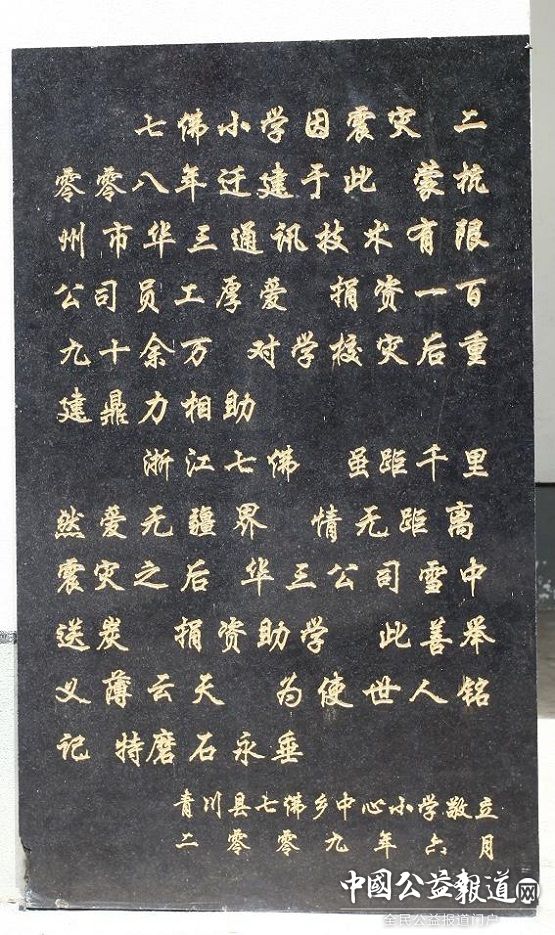 七佛小学因震灾 二
零零八年迁建于此 蒙杭
州市华三通讯技术有限
公司员工厚爱 捐资一百
九十余万 对学校灾后重
建鼎力相助
浙江七佛 虽距千里
然爱无疆界 情无距离
震灾之后 华三公司雪中
送炭 捐资助学 此善举
义薄云天 为使世人铭
记 特磨石永垂
青川县七佛乡中心小学敬立
二零零九年六月
中國公益報道网
全民公益报道门户